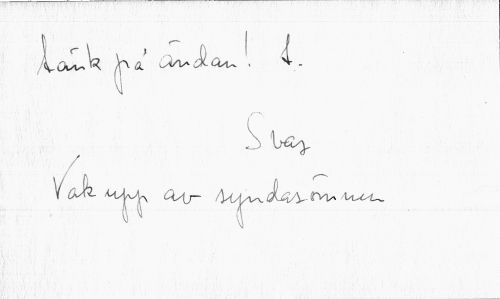 tänk på ändan! t.
Svar
Vak upp av syndasömnen